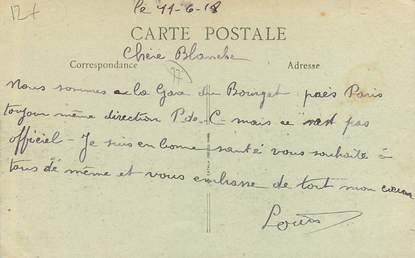 12f
le 11-6-18
CARTE POSTALE
Chère Blanche
Correspondance Adresse
77
Nous sommes a la Gare du Bourget près Paris
toujour même direction P-de-C mais ce n'est pas
officiel - Je suis en bonne santé vous souhaite à
tous de même et vous embrasse de tout mon cœur
Louis